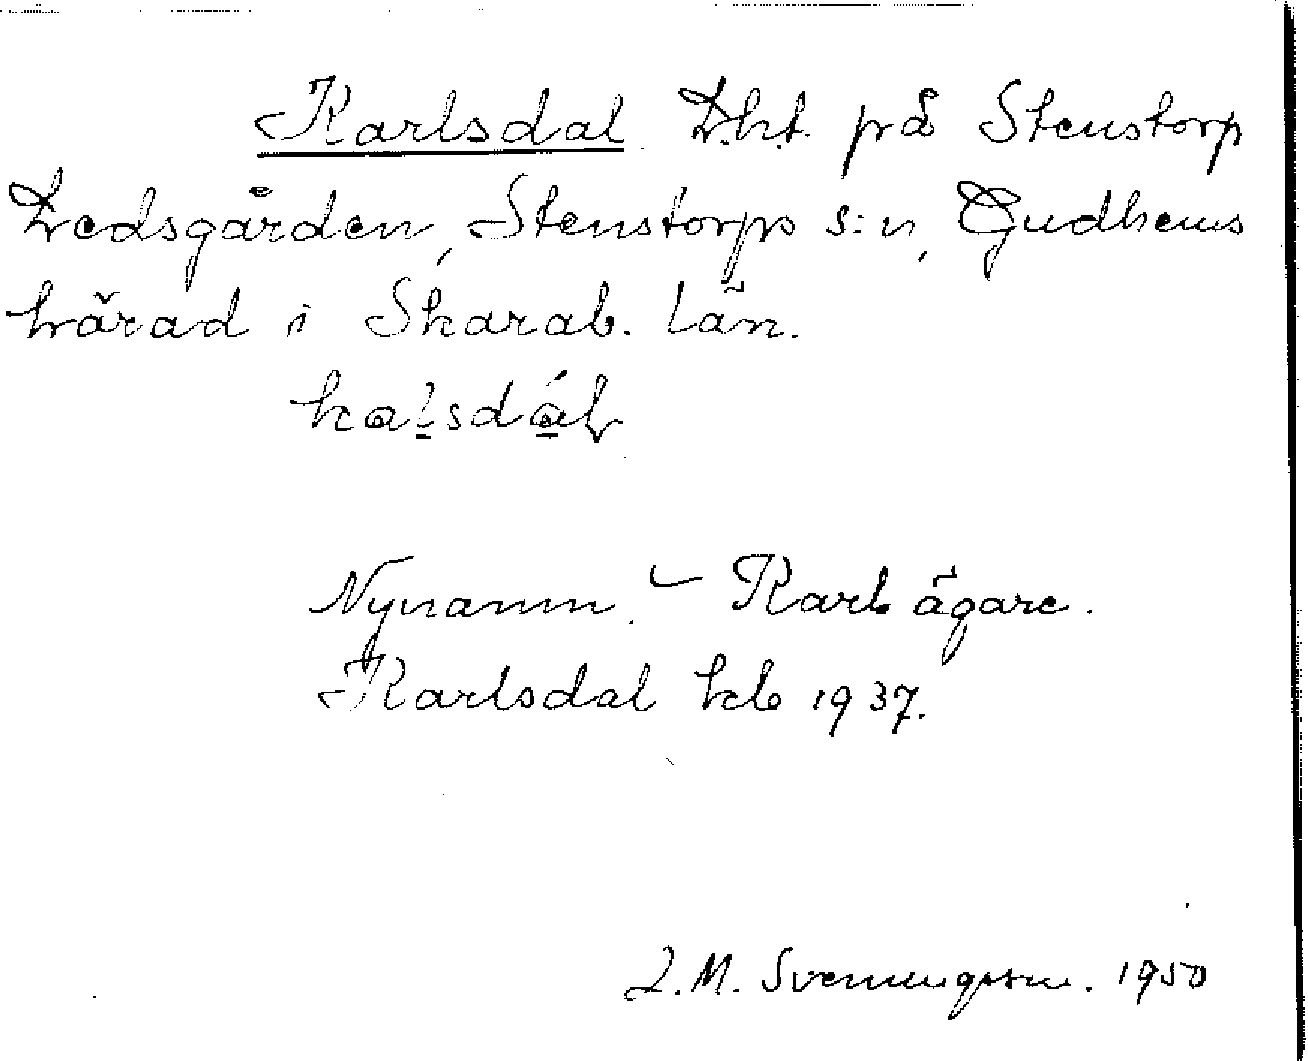 Karlsdal Lht. på Stenstorp
Ledsgården, Stenstorps s:n, Gudhems
härad i Skarab. län.
kaḻsdáḻ
Nynamn. – Karl ägare.
Karlsdal kb 1937.
L.M. Svenungsson. 1950